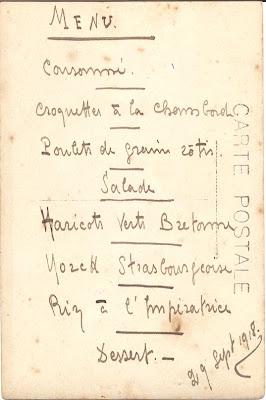 MENU.
Consommé.
Croquettes à la Chambord
Poulets de grain rôtis
Salade
Haricots Verts Bretonne
Yorck Strasbourgeoise
Riz à l'Impératrice
Dessert.
29 Sept 1918.
CARTE POSTALE